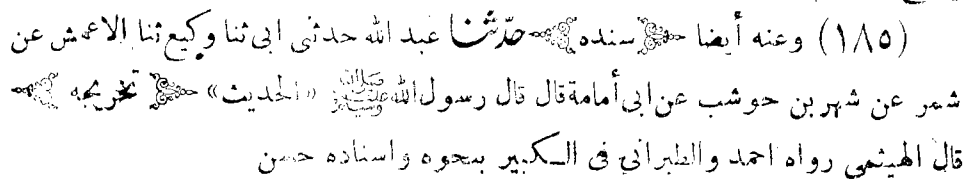 (١٨٥) وعنه أيضا ﴿سنده﴾ حدّثنا عبد الله حدثنى ابى ثنا وكيع ثنا الاعمش عن
شمر عن شهر بن حوشب عن ابى أمامة قال قال رسول الله ﷺ «الحديث» ﴿تخريجه﴾
قال الهيثمى رواه احمد والطبرانى فى الكبير بنحوه واسناده حسن